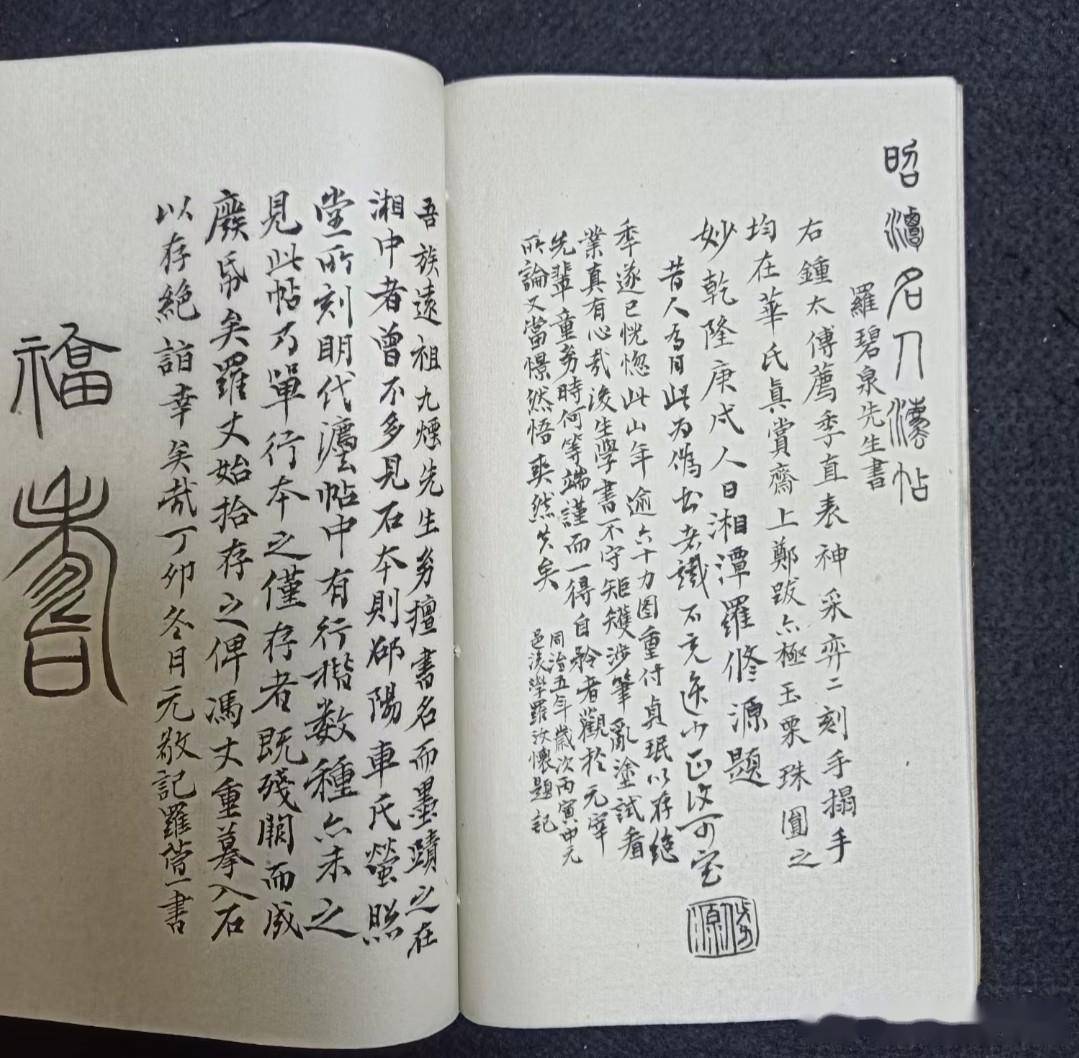 昭潭名人灋帖
羅碧泉先生書
右鍾太傅薦季直表神采弈二刻手搨手
均在華氏真賞齋上鄭跋亦極玉栗珠圓之
妙乾隆庚戌人日湘潭羅修源題
昔人有目此為偽書者識不克
年遂已恍惚此山年逾六十力圖重付貞珉以存絕
業真有心哉後生學書不守矩矱涉筆亂塗試看
先輩童時何等端謹而一得自矜者觀於元宰
所論又當憬然悟爽然失矣
同治五年歲次丙寅中元
邑後學羅汝懷題記
修源
吾族遠祖九煙先生夙擅書名而墨蹟之在
湘中者曾不多見石本則邵陽車氏螢照
堂所刻明代灋帖中有行楷數種亦未之
見此帖乃單行本之僅存者既殘闕而成
廢帋矣羅丈始拾存之俾馮丈重摹入石
以存絕詣幸矣哉丁卯冬月元敬記羅一書
福壽